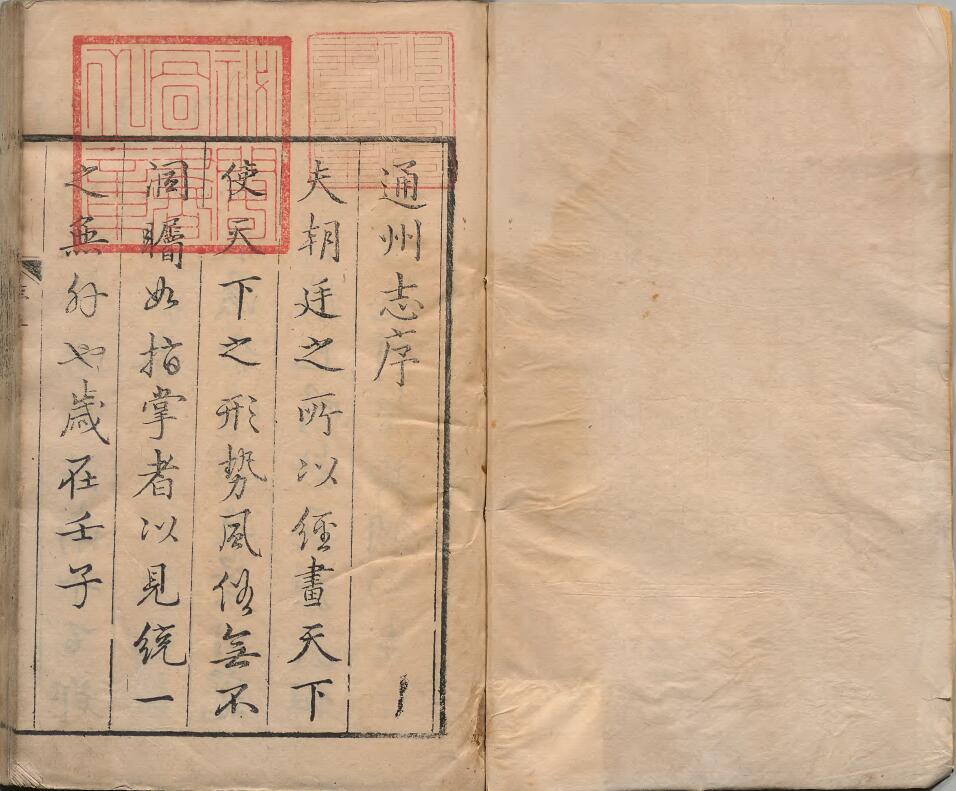 通州志序
夫朝廷之所以經畫天下
使天下之形勢風俗無不
洞矚如指掌者以見統一
之無外也歲在壬子